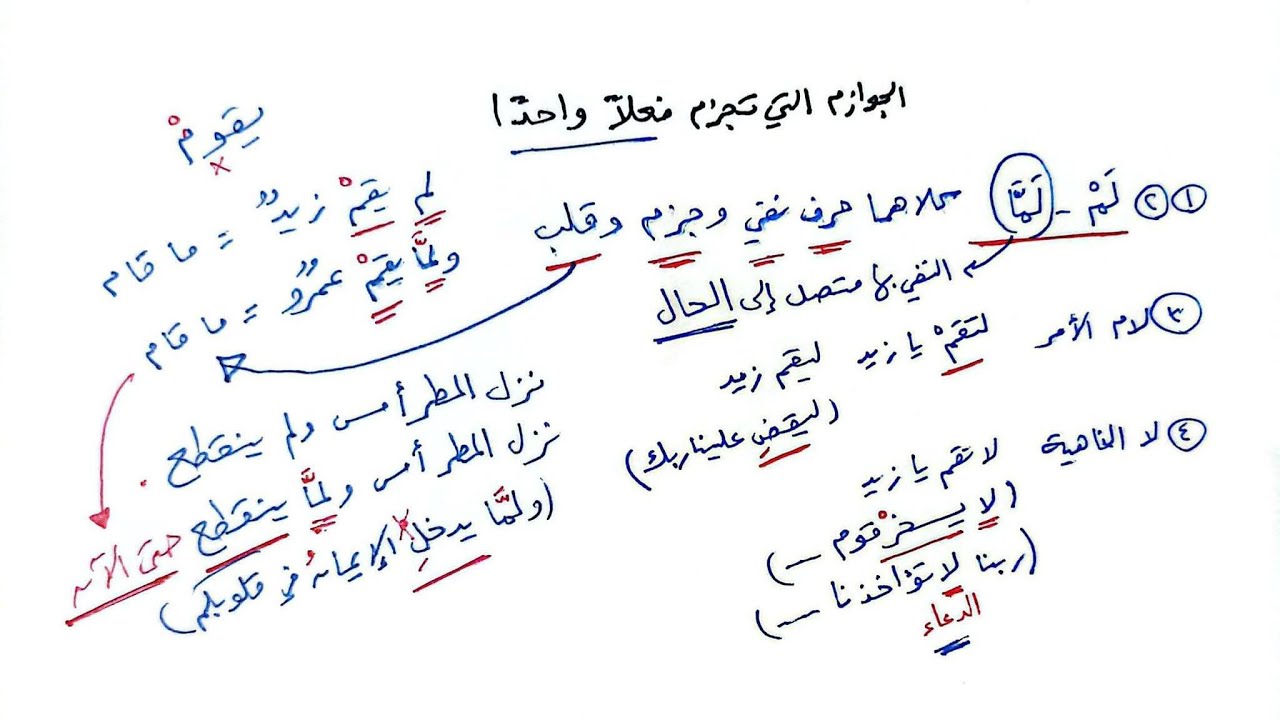 الجوازم التي تجزم فعلاً واحدًا
① ② لَمْ - لَمَّا كلاهما حرف نفي وجزم وقلب
النفي بها متصل إلى الحال
③ لام الأمر لتقمْ يا زيد ليقم زيد
(ليقضِ علينا ربك)
④ لا الناهية لا تقم يا زيد
(لا يسخرْ قوم ---)
(ربنا لا تؤاخذنا ---)
الدعاء
يقومْ
x
لم يقمْ زيدٌ = ما قام
ولمَّا يقمْ عمرٌو = ما قام
نزل المطر أمس ولم ينقطع .
نزل المطر أمس ولمَّا ينقطع حتى الآن
(ولمَّا يدخلِ الإيمانُ في قلوبكم)